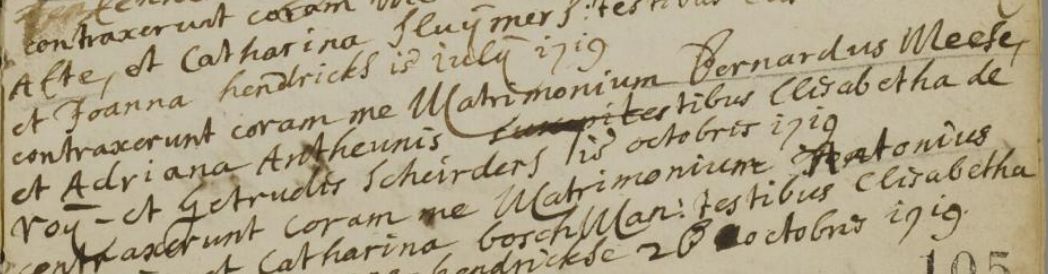 contraxerunt coram
Alte, et Catharina Sluÿmers: testibus
et Joanna hendricks is iulÿ 1719
contraxerunt coram me Matrimonium Bernardus Meese,
et Adriana Antheunis testibus Elisabetha de
roÿ - et Getrudis Scheirders 1is octobris 1719
contraxerunt coram me Matrimonium Antonius
et Catharina boschMan: testibus Elisabetha
hendrickse 26 octobris 1719
105